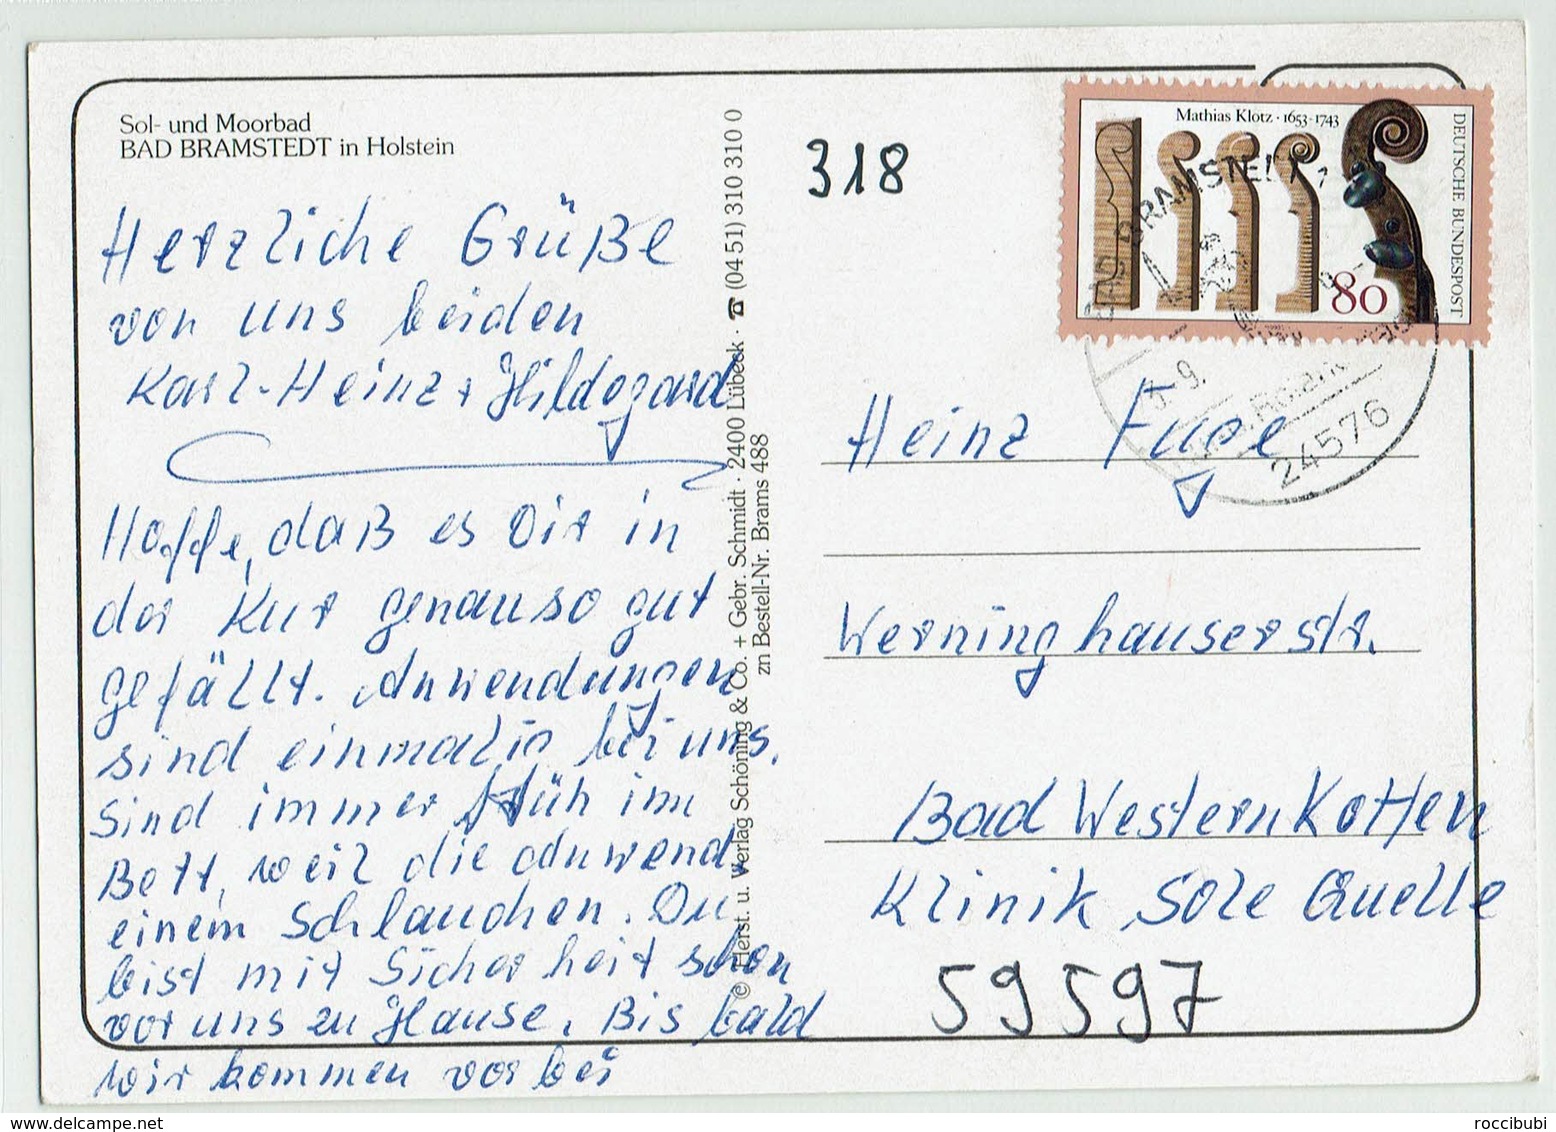 Sol- und Moorbad
BAD BRAMSTEDT in Holstein
Herzliche Grüße
von uns beiden
Karl-Heinz + Hildegard
Hoffe, daß es Dir in
der Kur genauso gut
gefällt. Anwendungen
sind einmalig bei uns.
Sind immer früh im
Bett, weil die Anwend.
einem schlauchen. Du
bist mit Sicherheit schon
vor uns zu Hause. Bis bald
wir kommen vorbei
© Herst. u. Verlag Schöning & Co. + Gebr. Schmidt · 2400 Lübeck · ☎ (04 51) 310 310 0
zn Bestell-Nr. Brams 488
318
Mathias Klotz · 1653-1743
DEUTSCHE BUNDESPOST
80
BAD BRAMSTEDT 1
5.9.
24576
Heinz
Werninghauserstr.
Bad Westernkotten
Klinik Sole Quelle
59597
roccibubi